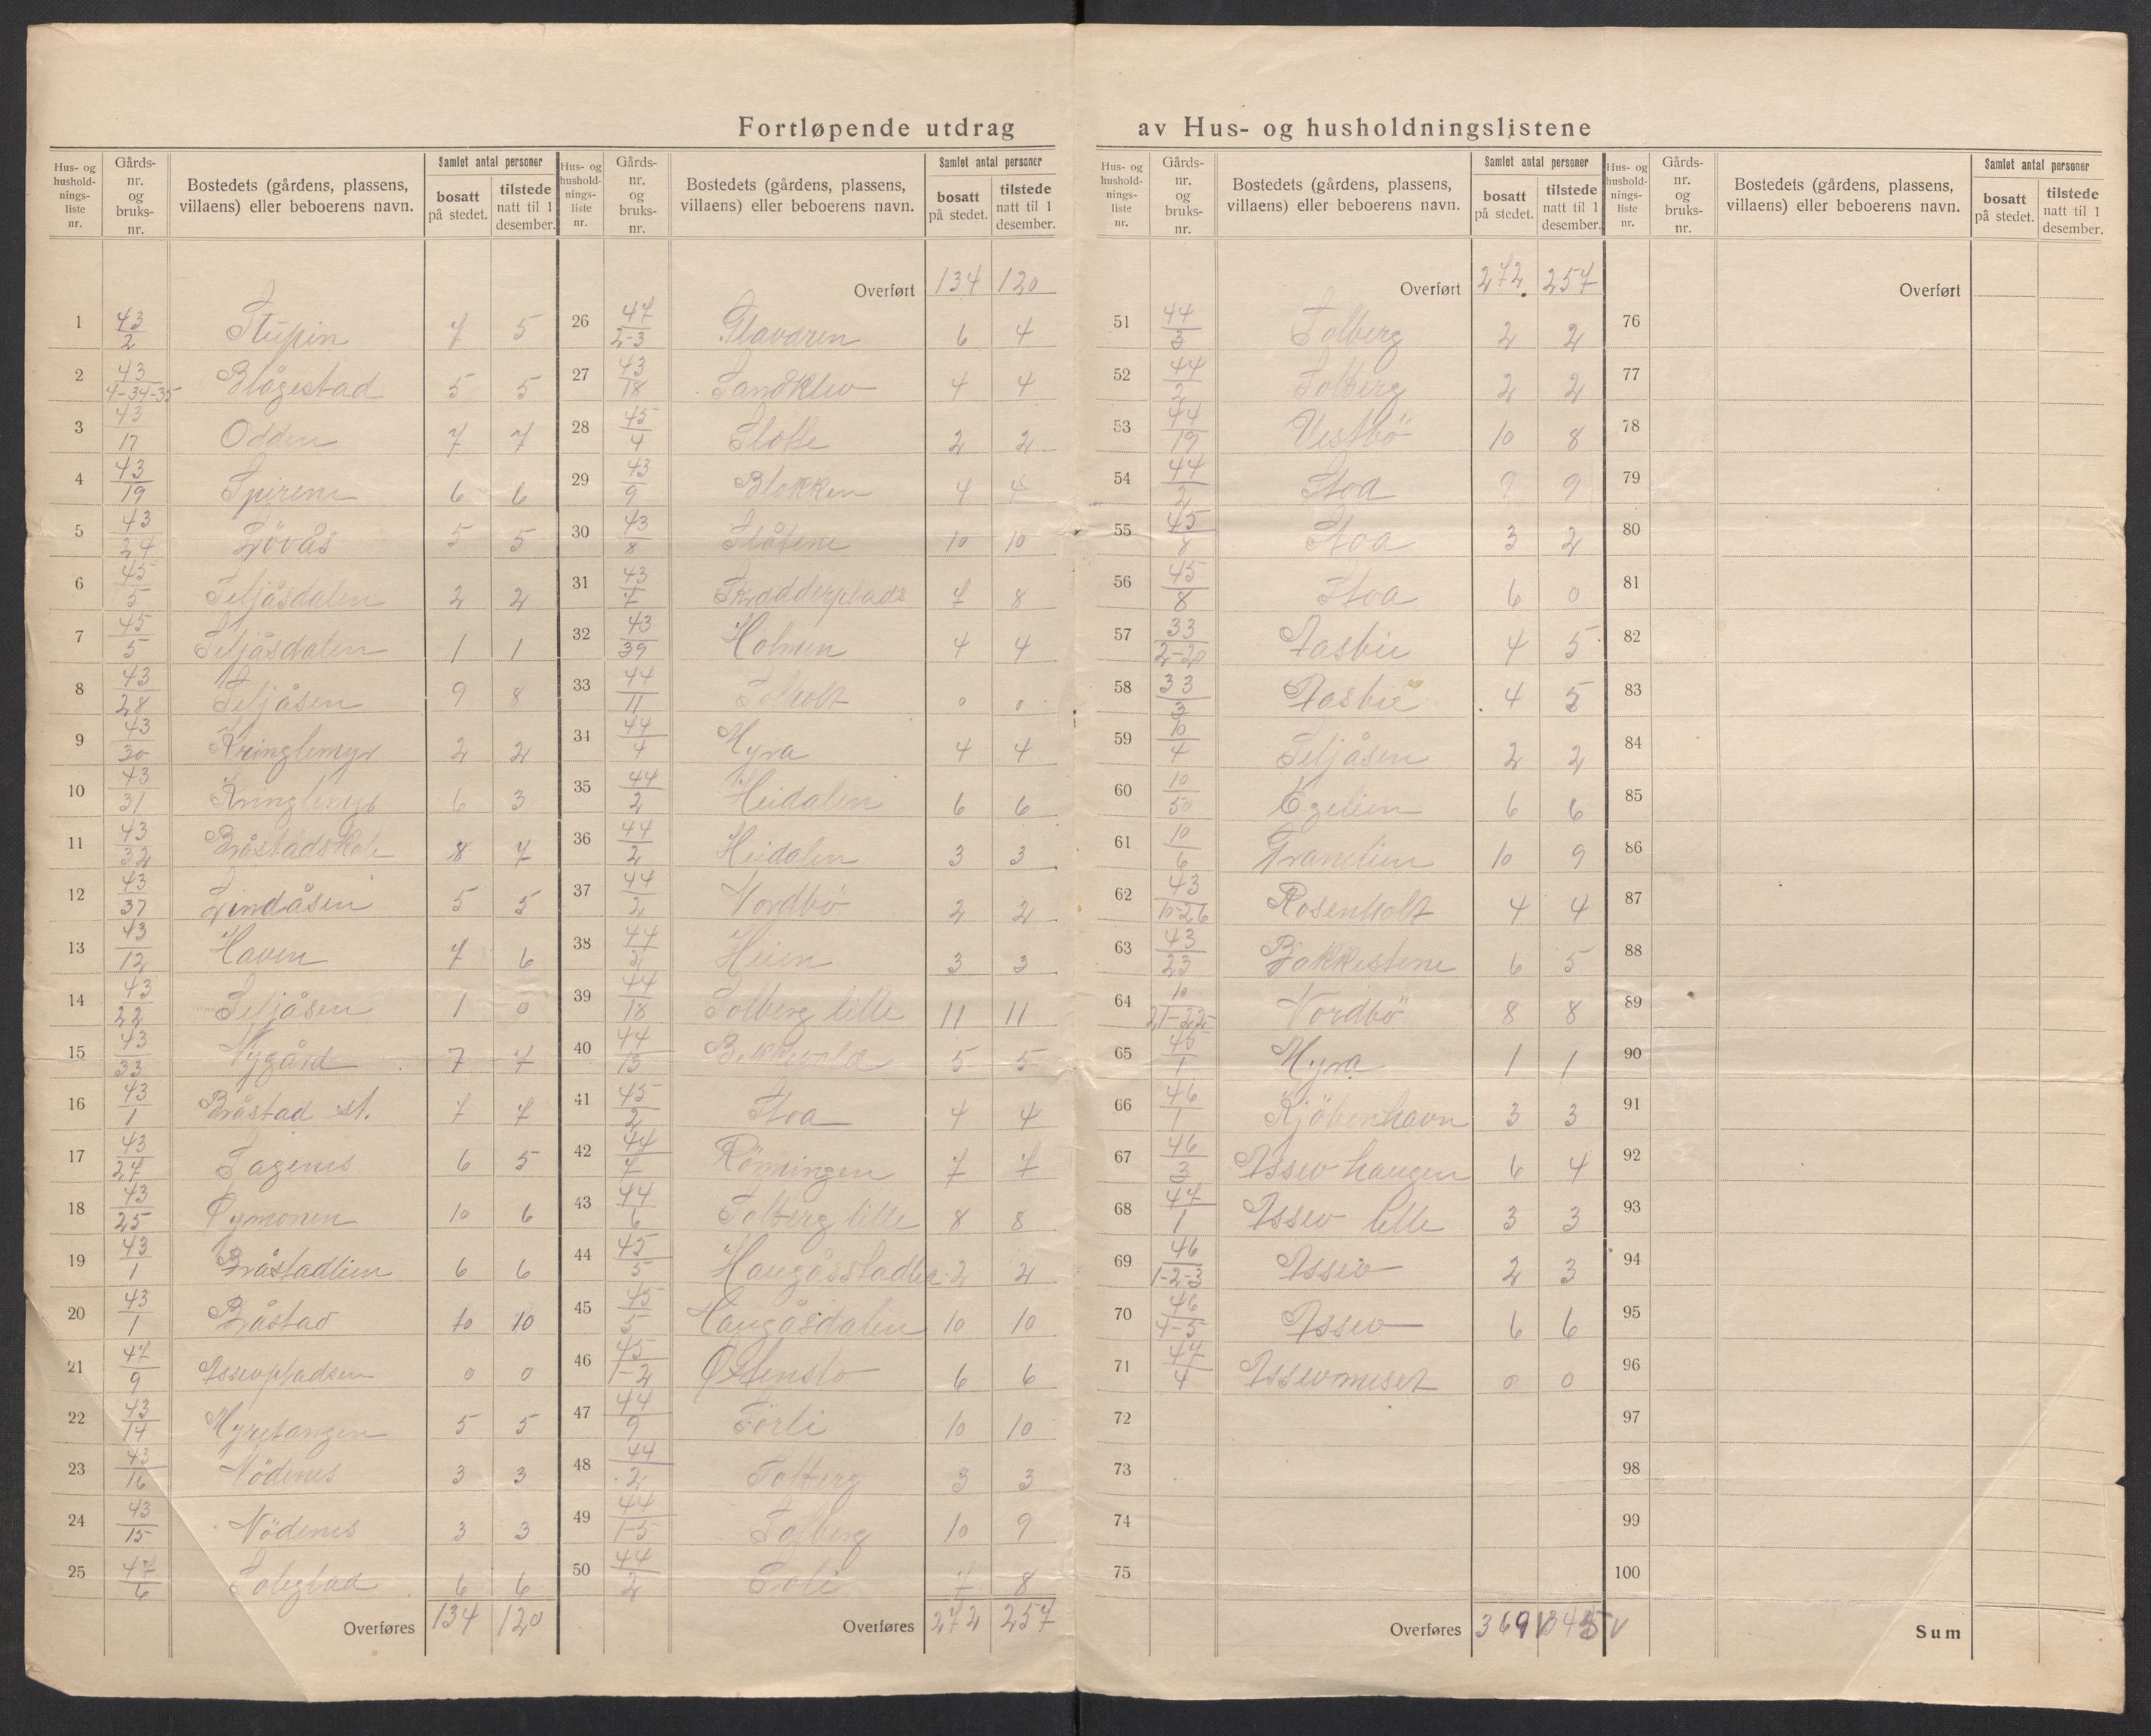 Fortløpende utdrag av Hus- og husholdningslistene
Hus- og husholdningsliste nr. | Gårdsnr. og bruksnr. | Bostedets (gårdens, plassens, villaens) eller beboerens navn. | Samlet antal personer | bosatt på stedet. | tilstede natt til 1 desember.
1 43/2 Stupin 7 5
2 43/4-34-35 Blågestad 5 5
3 43/17 Odden 7 7
4 43/19 Spirene 6 6
5 43/24 Lövås 5 5
6 45/5 Seljåsdalen 2 2
7 45/5 Seljåsdalen 1 1
8 43/28 Seljåsen 9 8
9 43/30 Kringlemyr 2 2
10 43/31 Kringlemyr 6 3
11 43/32 Bråstadskole 8 7
12 43/37 Lindåsen 5 5
13 43/12 Haven 7 6
14 43/22 Seljåsen 1 0
15 43/33 Nygård 7 7
16 43/1 Bråstad st. 7 7
17 43/27 Sagenes 6 5
18 43/25 Öymonen 10 6
19 43/1 Bråstadlien 6 6
20 43/1 Bråstad 10 10
21 47/9 Assevpladsen 0 0
22 43/14 Myretangen 5 5
23 43/16 Nödenes 3 3
24 43/15 Nödenes 3 3
25 47/6 6 6
Overføres 134 120
Hus- og husholdningsliste nr. | Gårdsnr. og bruksnr. | Bostedets (gårdens, plassens, villaens) eller beboerens navn. | Samlet antal personer | bosatt på stedet. | tilstede natt til 1 desember.
Overført 134 120
26 47/2-3 6 4
27 43/18 Sandklev 4 4
28 45/4 Slotte 2 2
29 43/9 Blokken 4 4
30 43/8 Slåtene 10 10
31 43/7 Skradderplads 7 8
32 43/39 Holmen 4 4
33 44/11 Solholt 0 0
34 44/4 Myra 4 4
35 44/2 Heidalen 6 6
36 44/2 Heidalen 3 3
37 44/2 Nordbö 2 2
38 44/2 Heien 3 3
39 44/18 Solberg lille 11 11
40 44/15 Bekkevold 5 5
41 45/2 Stoa 4 4
42 44/7 Römningen 7 7
43 44/6 Solberg lille 8 8
44 45/5 2 2
45 45/5 Haugåsdalen 10 10
46 45/1-2 Östenslo 6 6
47 44/9 Sörli 10 10
48 44/2 Solberg 3 3
49 44/1-5 Solberg 10 9
50 44/2 Soli 7 8
Overføres 272 257
Hus- og husholdningsliste nr. | Gårdsnr. og bruksnr. | Bostedets (gårdens, plassens, villaens) eller beboerens navn. | Samlet antal personer | bosatt på stedet. | tilstede natt til 1 desember.
Overført 272 257
51 44/3 Solberg 2 2
52 44/2 Solberg 2 2
53 44/19 Vestbö 10 8
54 44/2 Stoa 9 9
55 45/8 Stoa 3 2
56 45/8 Stoa 6 0
57 33/2-20 Aasbie 4 5
58 33/3 Aasbie 4 5
59 10/4 Seljåsen 2 2
60 10/50 Egelien 6 6
61 10/6 Granelien 10 9
62 43/10-26 Rosenholt 4 4
63 43/23 Bakkestene 6 5
64 10/21-22 Nordbö 8 8
65 46/1 Myra 1 1
66 46/1 Kjöbenhavn 3 3
67 46/3 Assev haugen 6 4
68 47/1 Assev lille 3 3
69 46/1-2-3 Assev 2 3
70 46/4-5 Assev 6 6
71 47/4 0 0
72
73
74
75
Overføres 369 345
Hus- og husholdningsliste nr. | Gårdsnr. og bruksnr. | Bostedets (gårdens, plassens, villaens) eller beboerens navn. | Samlet antal personer | bosatt på stedet. | tilstede natt til 1 desember.
Overført
76
77
78
79
80
81
82
83
84
85
86
87
88
89
90
91
92
93
94
95
96
97
98
99
100
Sum